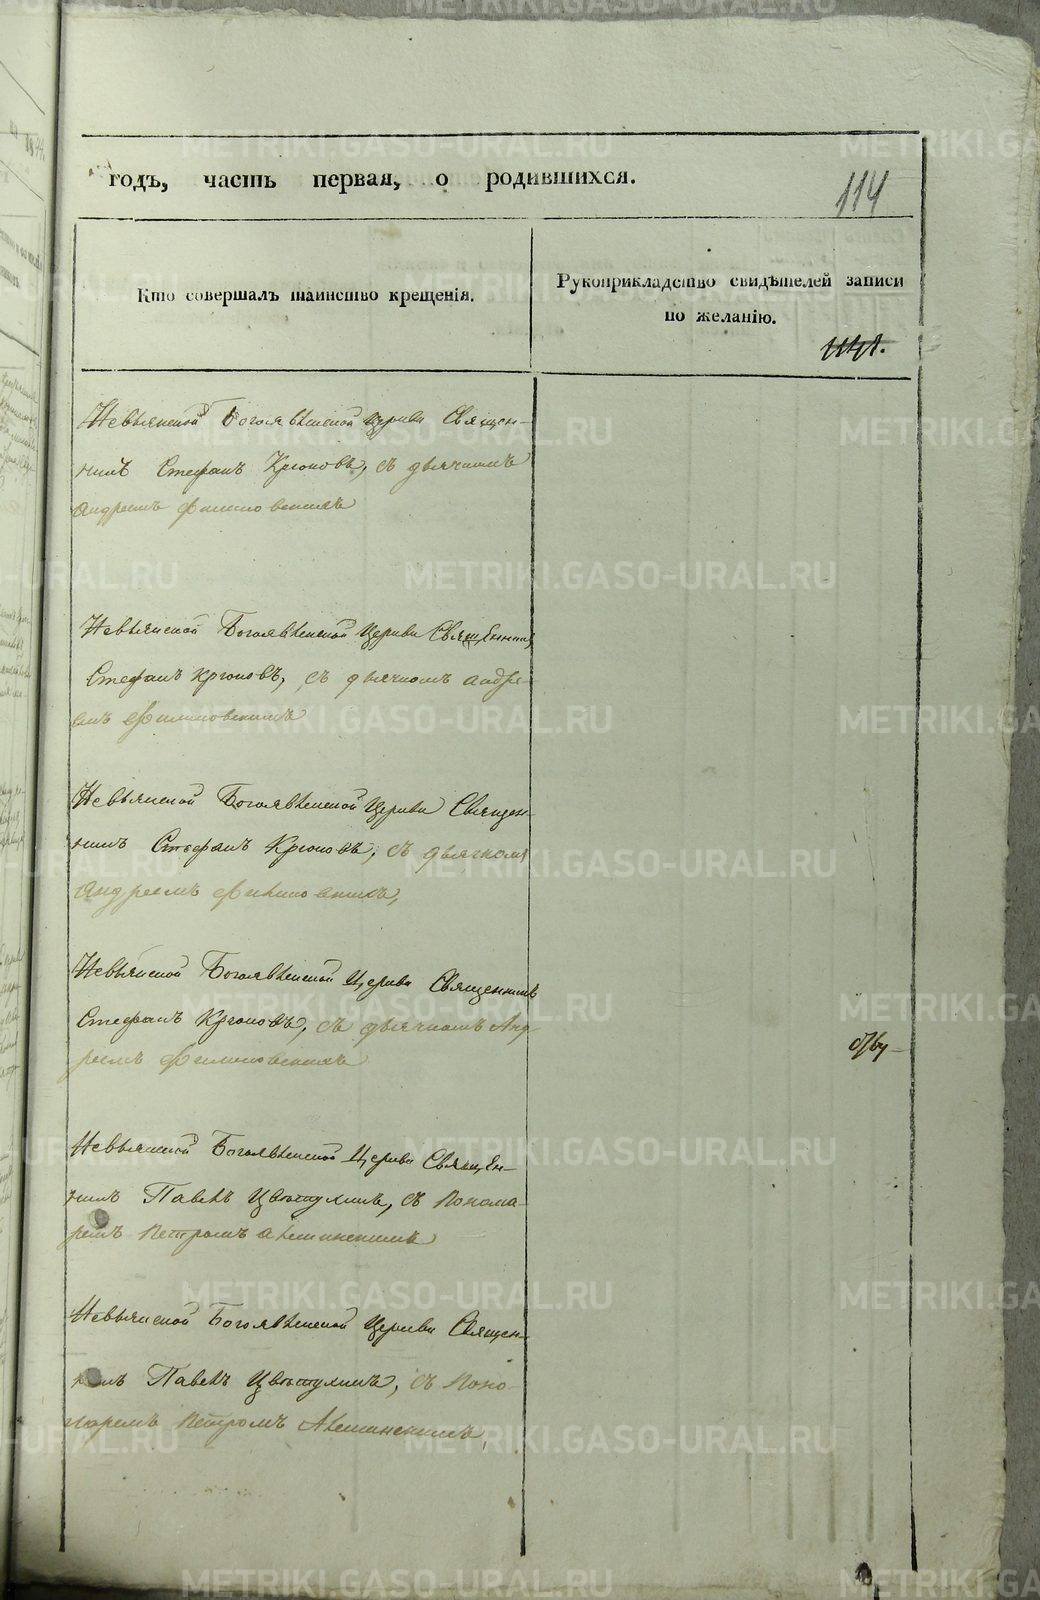 годъ, часть первая, о родившихся.
114
Кто совершалъ таинство крещенія.
Рукоприкладство свидѣтелей записи
по желанію.
Невьянской Богоявленской Церкви Священ-
никъ Стефанъ Крюковъ, съ дьячкомъ
Андреемъ Филиповскимъ
Невьянской Богоявленской Церкви Священникъ
Стефанъ Крюковъ, съ дьячкомъ Андре-
емъ Филиповскимъ
Невьянской Богоявленской Церкви Священ-
никъ Стефанъ Крюковъ, съ дьячкомъ
Андреемъ Филиповскимъ,
Невьянской Богоявленской Церкви Священникъ
Стефанъ Крюковъ, съ дьячкомъ Анд-
реемъ Филиповскимъ
Невьянской Богоявленской Церкви Священ-
никъ Павелъ Цвѣтухинъ, съ Понома-
ремъ Петромъ
Невьянской Богоявленской Церкви Священ-
никъ Павелъ Цвѣтухинъ, съ Поно-
маремъ Петромъ
METRIKI.GASO-URAL.RU